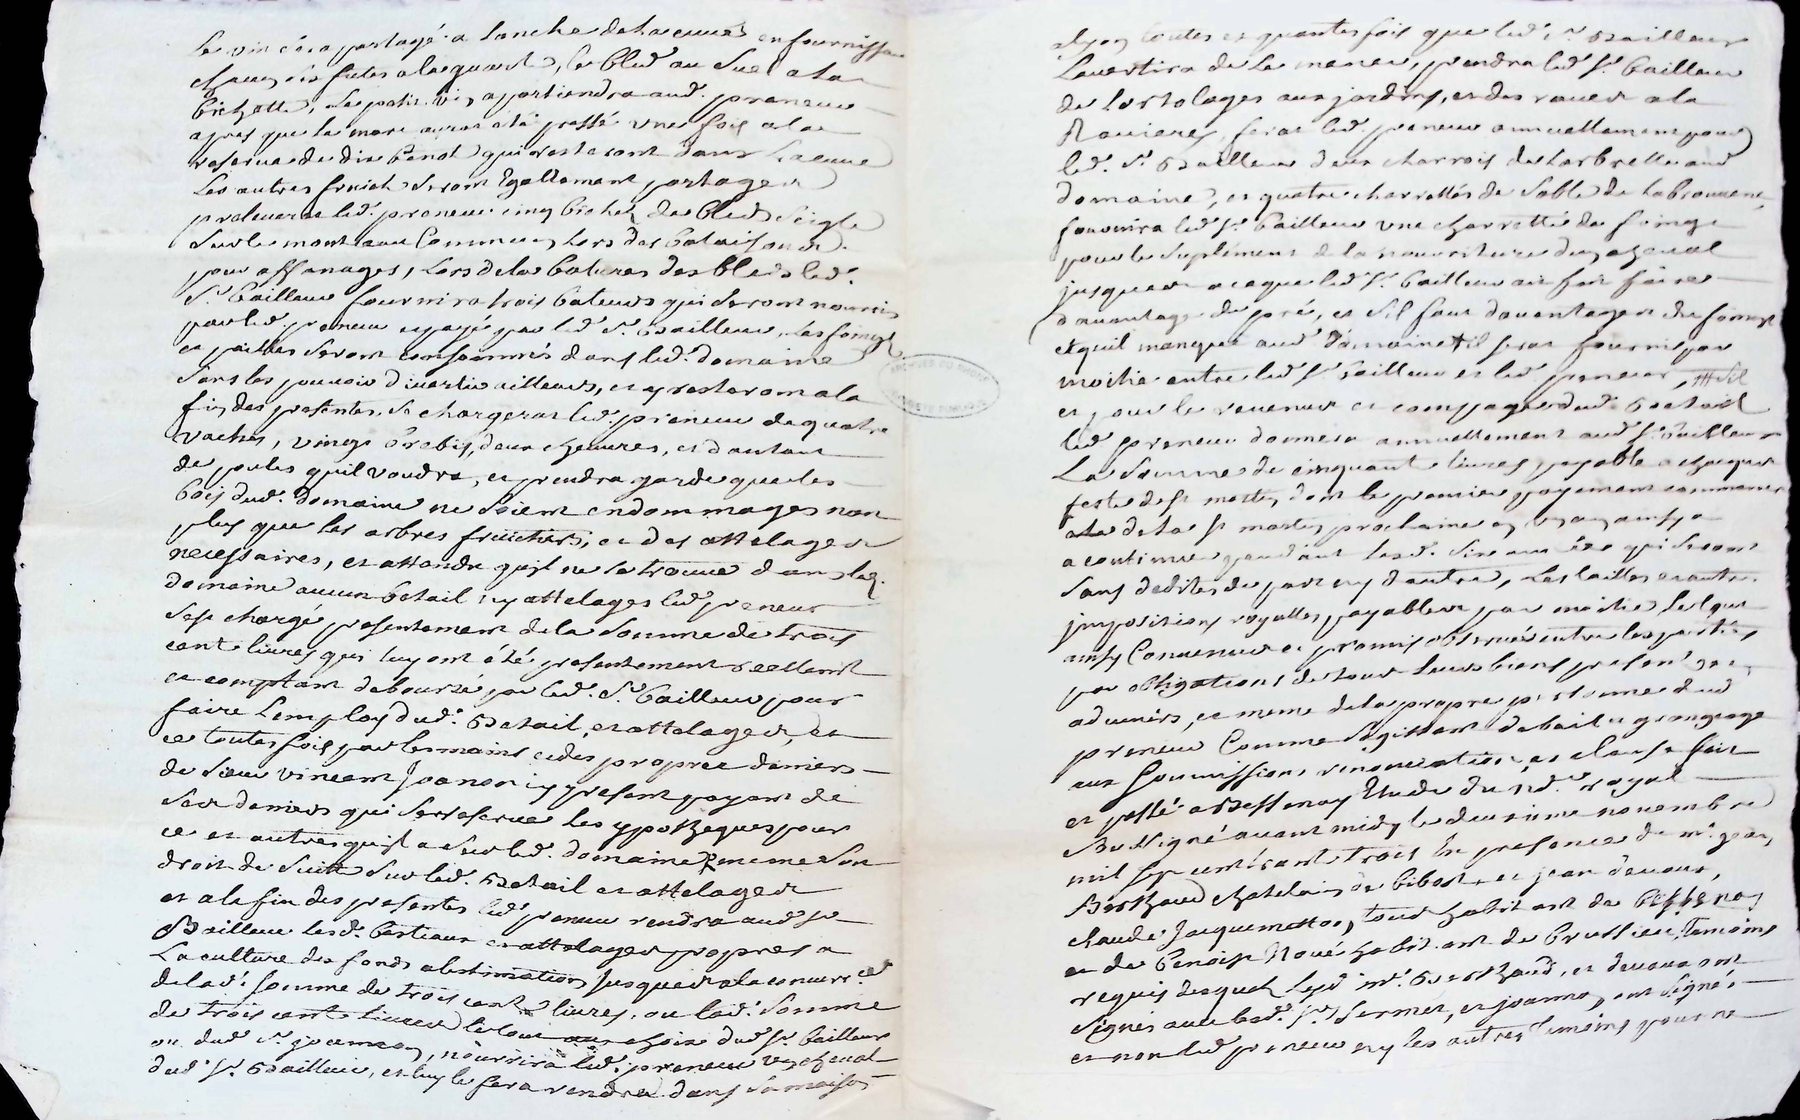 Le vin sera partagé a lanche de la cuve en fournissant
chacun six futes a la quarte, le bled au Suel a la
bichette, Le petit vin apartiendra aud. preneur
apres que la marc auras été pressé une fois a la
reserve de dix benot qui resteront dans la cuve
Les autres fruicts seront Egallement partages
prelevera led. preneur cinq bichet de bled Seigle
Sur le monceau Commun lors des bataisons
pour affanages, Lors de la batures des bleds led.
Sr. bailleur fournira trois bateurs qui seront nourris
par led. preneur et payé par led. Sr. Bailleur, Les foings
et pailles seront consommés dans led. domaine
Sans les pouvoir divertir ailleurs, et y resteront a la
fin des presentes. Se chargeras led. preneur de quatre
vaches, vingt brebis, deux chevres, et d'autant
de poules quil voudra, et prendra garde que les
bois dud. Domaine ne soient endommages non
plus que les arbres fruictiers, et des attelages
necessaires, et attendu quil ne se trouve dans led.
domaine aucun betail ny attelages led. preneur
sest chargé presentement de la Somme de trois
cent livres qui luy ont été presentement reellemt
et comptant deboursé par led. Sr. bailleur pour
faire Lemploy dud. Betail, et attelages, et
ce toutes fois par les mains et des propres deniers
de Sieur vincent Joanon icy present payant de
Ses deniers qui se reserve les ypotheques pour
ce et autres quil a Sur led. domaine, meme Son
droit de Suitte Sur led. Betail et attelages
et a la fin des presentes led. preneur rendra aud. Sr.
Bailleur lesd. bestiaux et attelages propres a
La culture des fonds a lestimation jusques a la concurr.ce
de lad. Somme de trois cent livres, ou lad. Somme
de trois cent livres le tout au choix dud. Sr. bailleur
ou dud. Sr. joannon, nourrira led. preneur un cheval
dud. Sr. Bailleur, et luy le fera rendre dans sa maison
a lyon toutes et quantes fois que led. Sr. Bailleur
Lavertira de Le mener, prendra led. Sr. bailleur
de lortolages aux jardins, et des raves a la
Raviere, feras led. preneur annuellement pour
led. Sr. Bailleur deux charrois de Larbresle aud.
domaine, et quatre charrettés de Sable de la brevenne,
fournira led. Sr. bailleur une charretté de foingt
pour le Suplément de la nourriture du cheval
jusques a ce que led. Sr. bailleur ait fait faire
davantage de pré, et Sil faut davantages de foingt
et quil manque aud. domaine il seras fourni par
moitié entre led. Sr. bailleur et led. preneur,
et pour le revenus et compages dud. Betail
led. preneur donnera annuellement aud. Sr. Bailleur
La Somme de cinquante livres, payable a chaque
feste de St. martin, dont le premier payement commencera
a la St. martin prochaine en un an ainsy
a continuer pendant lesd. six années qui seront
Sans dedites de part ny d'autre, Les tailles et autres
jmpositions royalles, payables par moitié, Lesquels
ainsy Convenus et promis observer entre les parties
par obligations de tous leurs biens present et
advenirs, et meme de la propre personne dud.
preneur Comme Sagissant de bail a grangeage
aux Soumissions renonciations et clauses fait
et passé a Bessenay Etude du nd.re royal
Soussigné avant midy le deuxieme novembre
mil sept cent soixante trois En presence de mr. jean
Berthaud chatelain de bibost, et jean devaux,
claude Jacquemettoz, tous habitant de Bessenay
et de benoist Noué habitant de brussieu, temoins
requis desquels led. mr. Berthaud, et devaux ont
signés avec led. Sr. Sermet, et joannon, ont signés
et non led. preneur ny les autres temoins pour ne